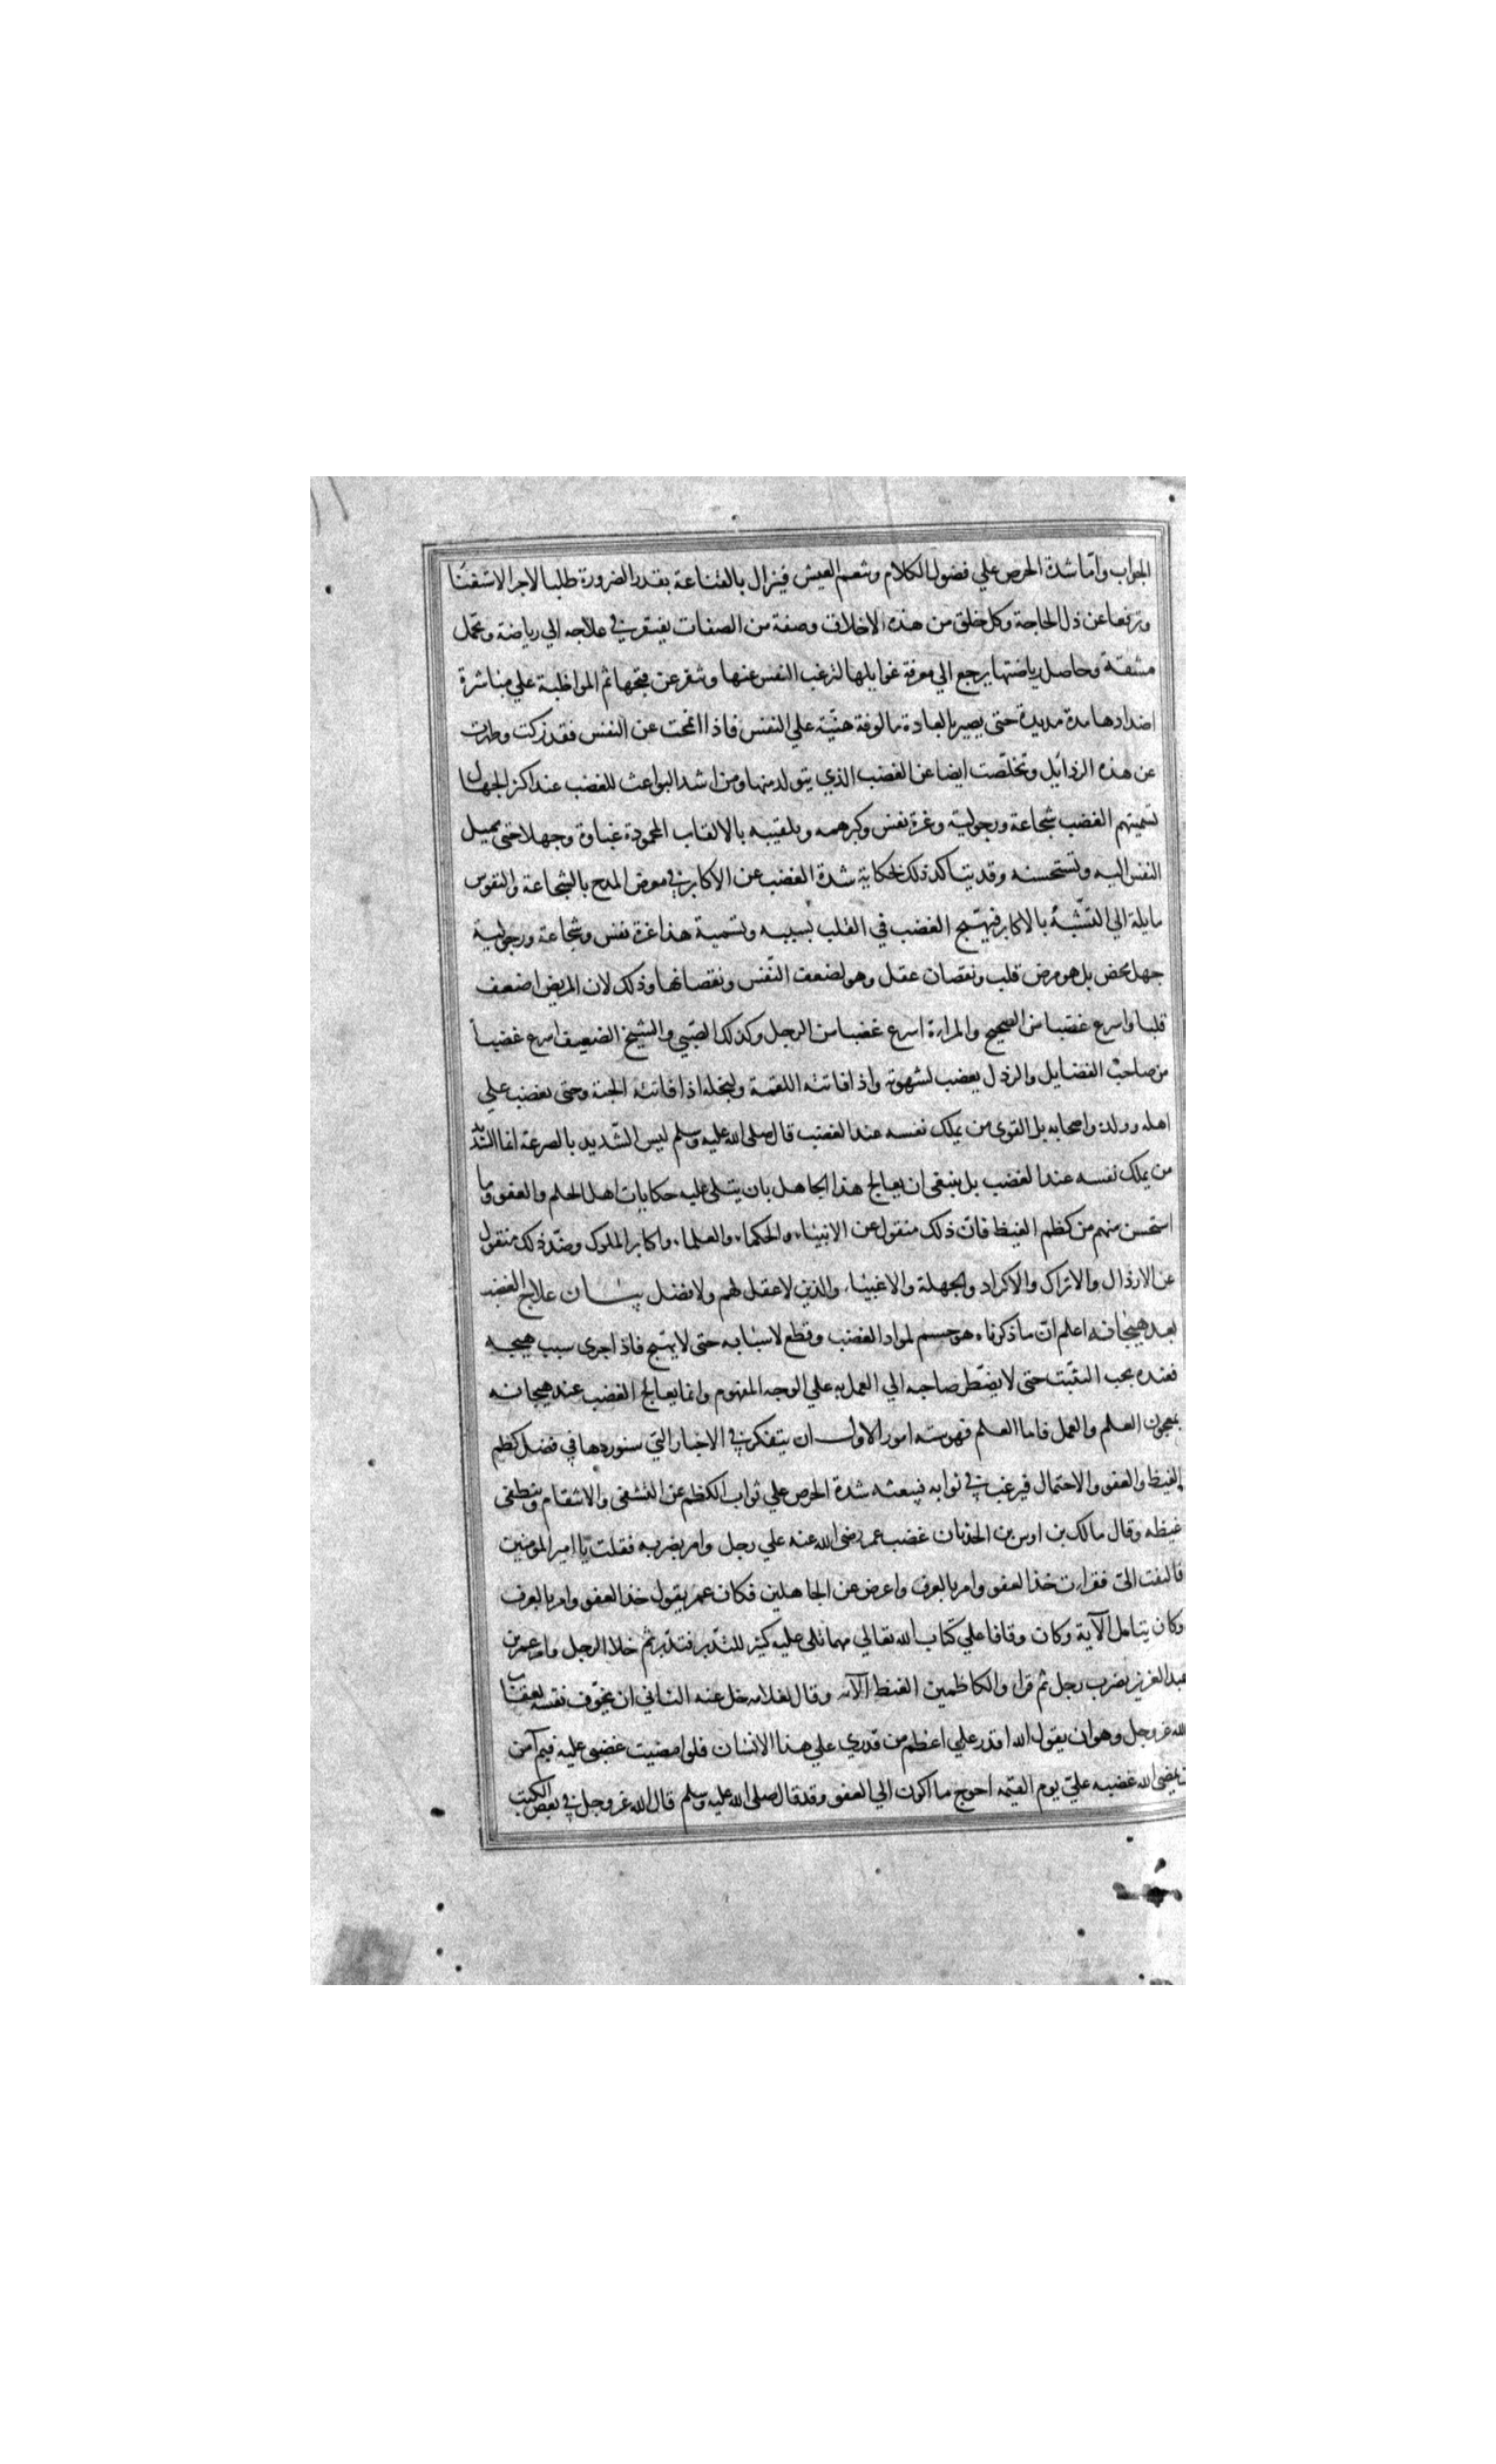 الجواب واما شدة الحرص علي فضول الكلام وتنعم العيش فيزال بالقناعة بقدر الضرورة طلبا لاجر الاستغنا
وترفعا عن ذل الحاجة وكل خلق من هذه الاخلاق وصفة من الصفات يفتقر في علاجه الي رياضة وتحمل
مشقة وحاصل رياضتها يرجع الي معرفة غوايلها لترغب النفس عنها وتنفر عن قبحها ثم المواظبة علي مباشرة
اضدادها مدة مديدة حتى يصير بالعادة مالوفة هنيّة علي النفس فاذا انمحت عن النفس فقد زكت وطهرت
عن هذه الرذائل وتخلّصت ايضا عن الغضب الذي يتولد منها ومن اشد البواعث للغضب عند اكثر الجهال
تسميتهم الغضب شجاعة ورجولية وعزة نفس وكبر همه وتلقيبه بالالقاب المحمودة غباوة وجهلا حتى يميل
النفس اليه وتستحسنه وقد يتاكد ذلك بحكاية شدة الغضب عن الاكابر في معرض المدح بالشجاعة والنفوس
مايلة الي التشبّه بالاكابر فيهتيج الغضب في القلب بسببه وتسمية هذا عزة نفس وشجاعة ورجولية
جهل محض بل هو مرض قلب ونقصان عقل وهو لضعف النّفس ونقصانها وذلك لان المريض اضعف
قلبا واسرع غضبا من الصحيح والمراة اسرع غضبا من الرجل وكذلك الصّبي والشيخ الضعيف اسرع غضباً
من صاحب الفضايل والرذل يغضب لشهوته واذا فاتته اللقمة ولبخله اذا فاتته الحبة وحتى يغضب علي
اهله وولده واصحابه بل القوى من يملك نفسه عند الغضب قال صلى الله عليه وسلم ليس الشّديد بالصرعة انما الشّديد
من يملك نفسه عند الغضب بل ينبغى ان يعالج هذا الجاهل بان يتلى عليه حكايات اهل الحلم والعفو وما
استحسن منهم من كظم الغيظ فانّ ذلك منقول عن الانبياء والحكماء والعلماء واكابر الملوك وضدّ ذلك منقول
عن الارذال والاتراك والاكراد والجهلة والاغبياء والذين لا عقل لهم ولا فضل بيان علاج الغضب
بعد هيجانه اعلم انّ ما ذكرناه هو حسم لمواد الغضب وقطع لاسبابه حتى لا يهتيج فاذا جرى سبب هيجه
فعنده يجب التثبّت حتى لا يضطر صاحبه الي العمل به علي الوجه المذموم وانما يعالج الغضب عند هيجانه
بمعجون العلم والعمل فاما العلم فهو ستة امور الاول ان يتفكر في الاخبار التي سنوردها في فضل كظم
الغيظ والعفو والاحتمال فيرغب في ثوابه فيبعثه شدة الحرص علي ثواب الكظم عن التشفى والانتقام وينطفى
غيظه وقال مالك بن اوس بن الحدثان غضب عمر رضى الله عنه علي رجل وامر بضربه فقلت يا امير المومنين
فالتفت اليّ فقرات خذ العفو وامر بالعرف واعرض عن الجاهلين فكان عمر يقول خذ العفو وامر بالعرف
وكان يتامل الآية وكان وقافا علي كتاب الله تعالي مهما تلى عليه كثير التدبر فتدبر ثم خلا الرجل وامر عمر بن
عبد العزيز بضرب رجل ثم قرا والكاظمين الغيظ الآيه وقال لغلامه خل عنه الثاني ان يخوّف نفسه بعقاب
الله عز وجل وهو ان يقول الله اقدر علي اعظم من قدرتي علي هذا الانسان فلو امضيت غضبى عليه فبم آمن
ان يمضى الله غضبه عليّ يوم القيمه احوج ما اكون الي العفو وقد قال صلى الله عليه وسلم قال الله عز وجل في بعض الكتب